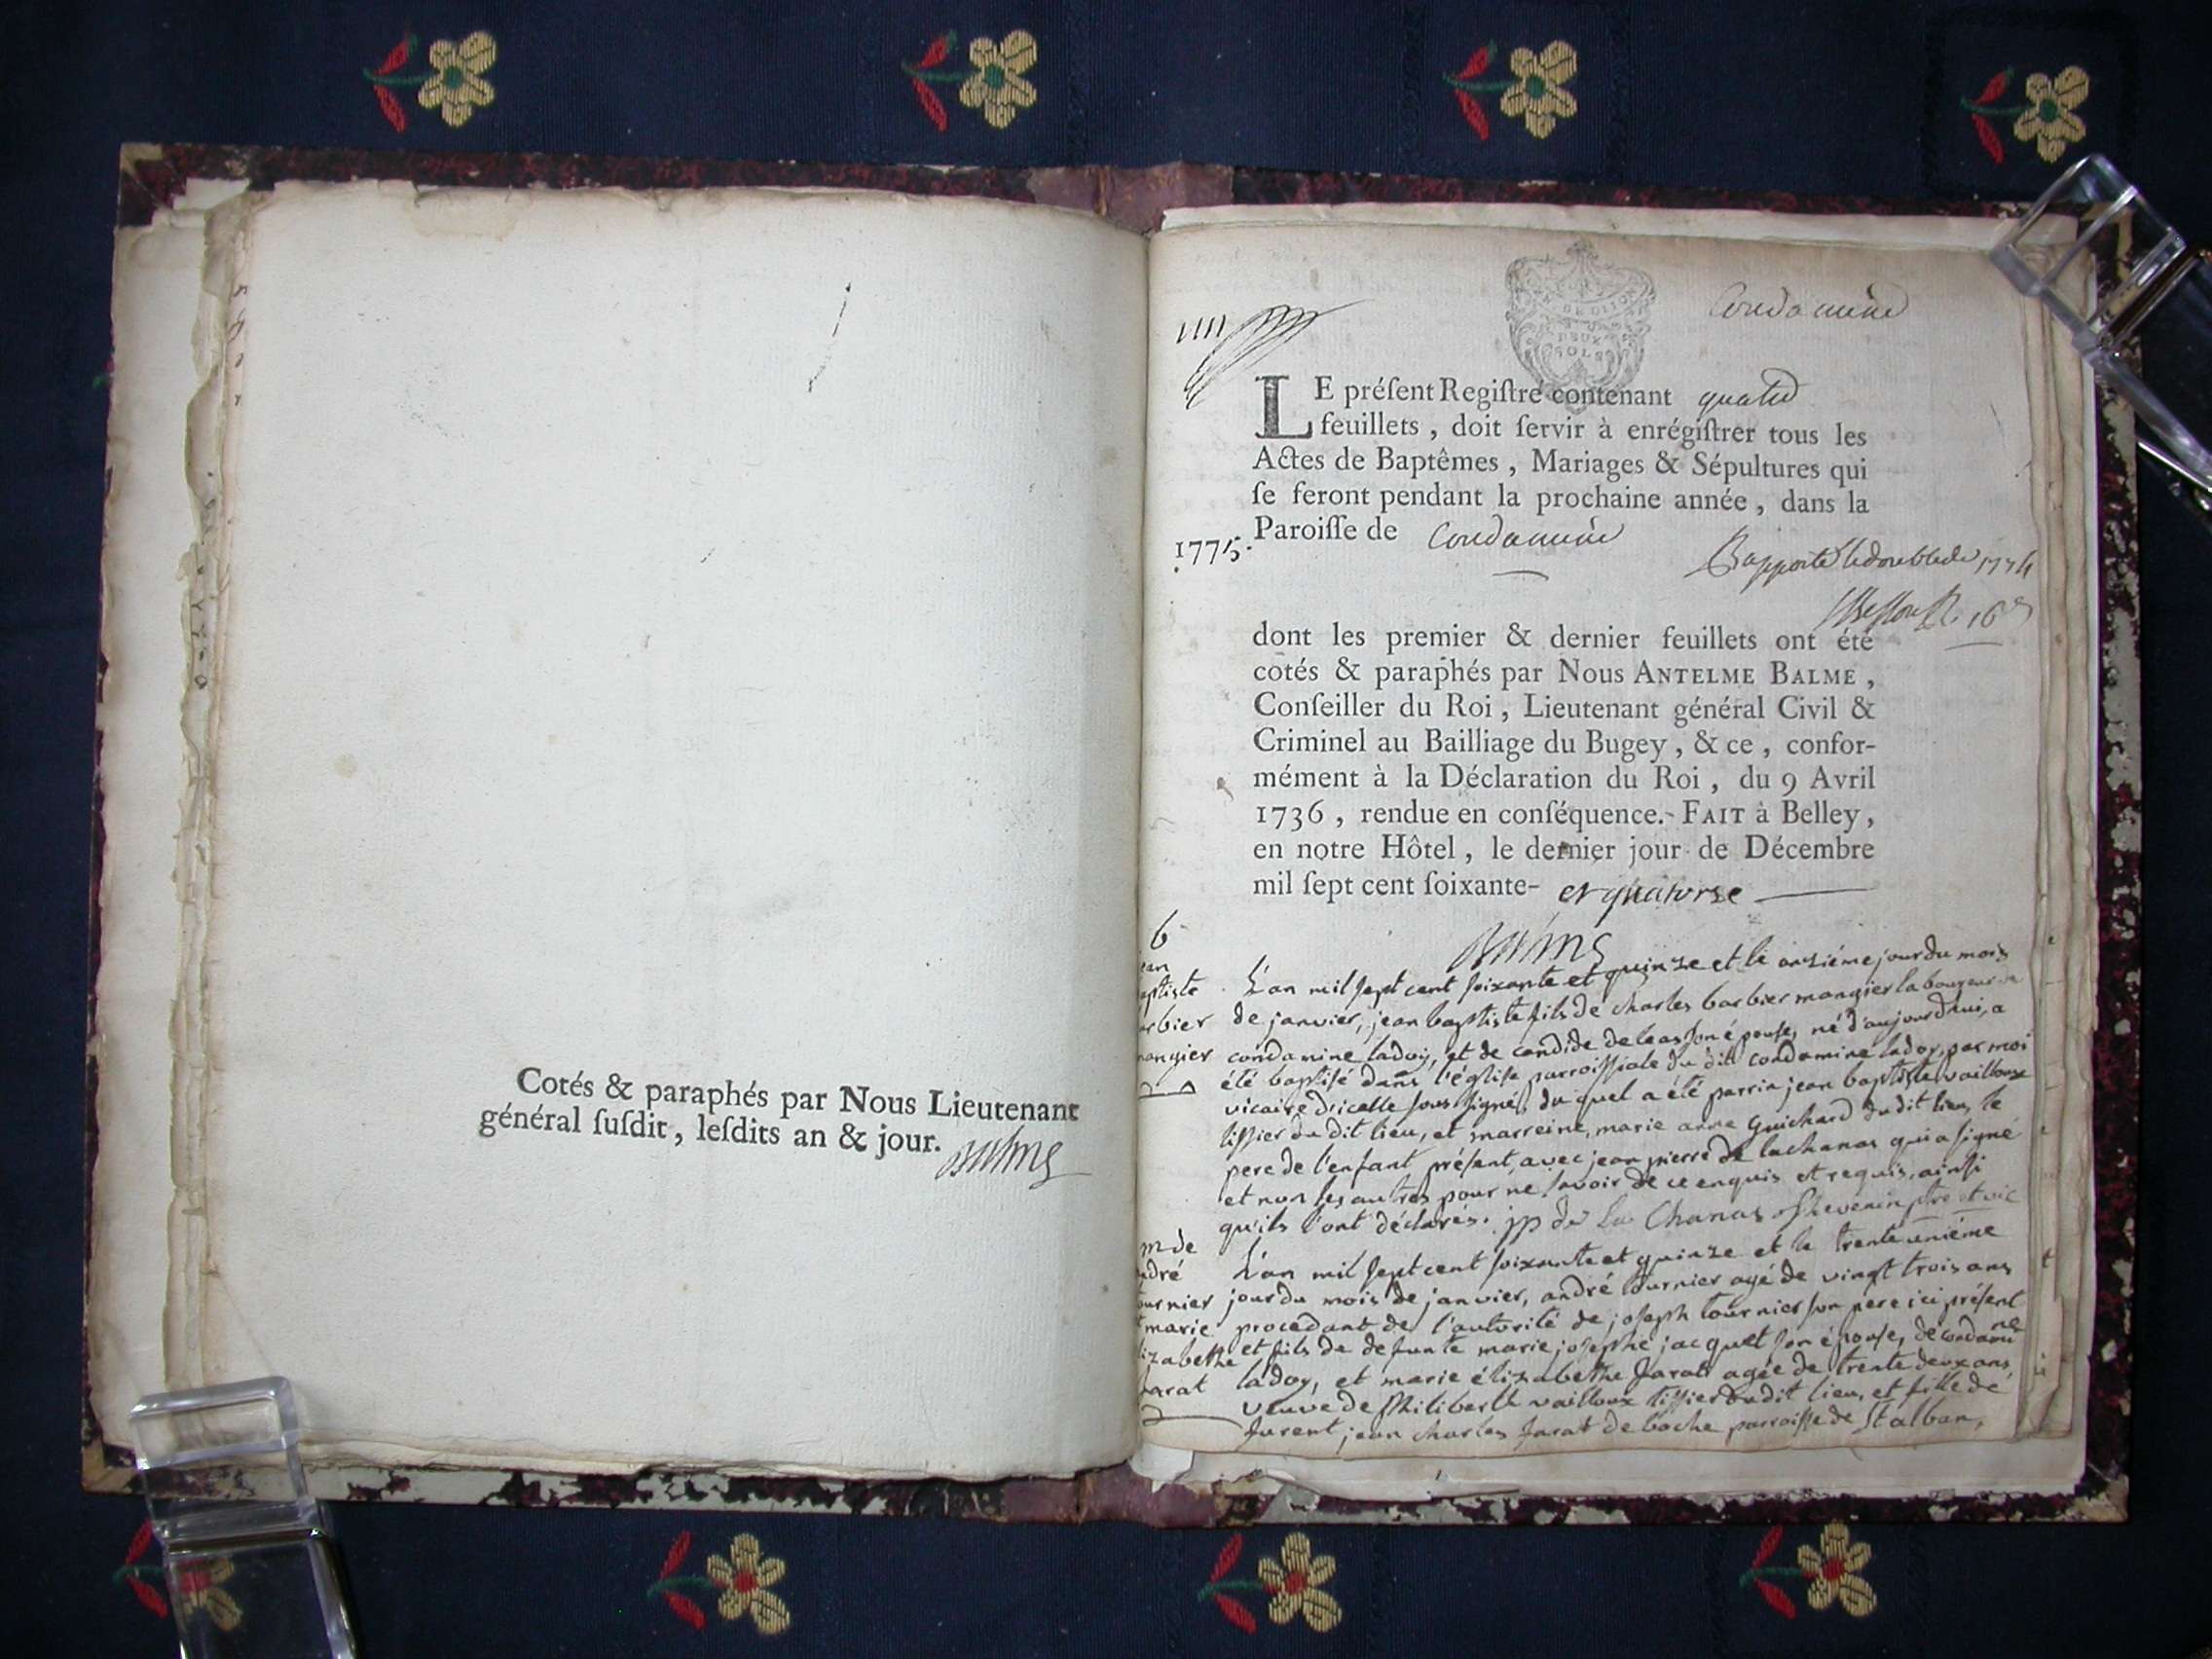 Cotés & paraphés par Nous Lieutenant
général ſuſdit, leſdits an & jour.
Balme
Condamine
DEUX
SOLS
LE préſent Regiſtre contenant quatre
feuillets, doit ſervir à enrégiſtrer tous les
Actes de Baptêmes, Mariages & Sépultures qui
ſe feront pendant la prochaine année, dans la
Paroiſſe de Condamine
1775.
Rapporté le double de 1774
dont les premier & dernier feuillets ont été
cotés & paraphés par Nous ANTELME BALME,
Conſeiller du Roi, Lieutenant général Civil &
Criminel au Bailliage du Bugey, & ce, confor-
mément à la Déclaration du Roi, du 9 Avril
1736, rendue en conſéquence. FAIT à Belley,
en notre Hôtel, le dernier jour de Décembre
mil ſept cent ſoixante- et quatorse
Balme
b
ean
aptiste
arbier
mangier
L'an mil sept cent soixante et quinze et le onziéme jour du mois
de janvier, jean baptiste fils de charles barbier mangier laboureur
condamine ladoy, et de candide deleas son épouse, né d'aujourdhui, a
été baptisé dans l'église parroissiale du dit condamine ladoy, par moi
vicaire d'icelle soussigné, du quel a été parrin jean baptiste vailloux
tissier du dit lieu, et marreine, marie anne Guichard du dit lieu, le
pere de l'enfant présent, avec jean pierre de lachanas qui a signé
et non les autres pour ne savoir de ce enquis et requis, ainsi
qu'ils l'ont déclarés. jp de La Chanas Thevenin ptre et vic
m de
ndré
ournier
t marie
lizabethe
Jarat
L'an mil sept cent soixante et quinze et le trente uniéme
jour du mois de janvier, andré tournier agé de vingt trois ans
procedant de l'autorité de joseph tournier son pere ici présent
et fils de defunte marie josephe jacquet son épouse, de condamine
ladoy, et marie élizabethe Jarat agée de trente deux ans
veuve de Philiberth vailloux tissier du dit lieu, et fille de
furent jean charles Jarat de boche parroisse de St alban,